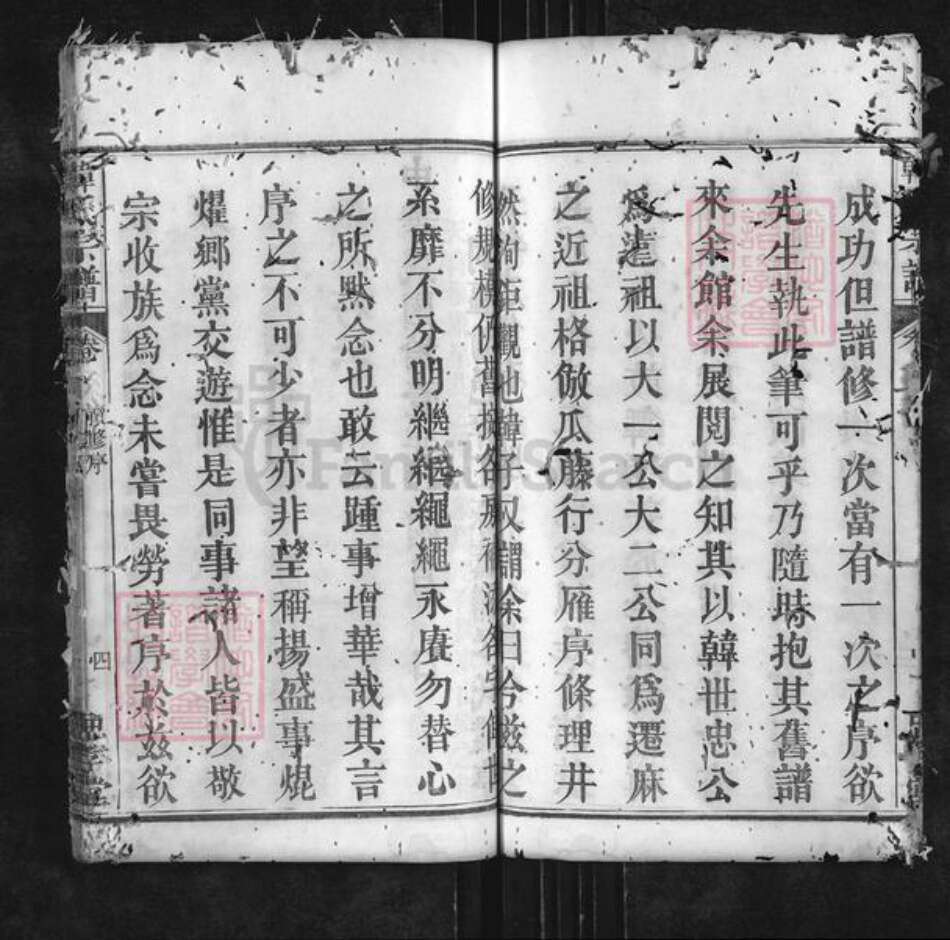 成功但譜修一次當有一次之序欲
先生執此筆可乎乃隨時抱其舊譜
來余館余展閱之知其以韓世忠公
為遠祖以大一公大二公同為遷麻
之近祖格倣瓜藤行分雁序條理井
然洵巨觀也韓子又謂余曰今茲之
修規模仍舊
系靡不分明繼繼繩繩永賡勿替心
之所默念也敢云踵事增華哉其言
序之不可少者亦非望稱揚盛事焜
燿鄉黨交遊惟是同事諸人皆以敬
宗收族為念未嘗畏勞著序於茲欲
韓氏宗譜
卷
續修序
四
FamilySearch